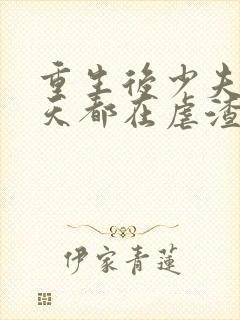 重生後少夫
天都在虐渣
伊家青蓮